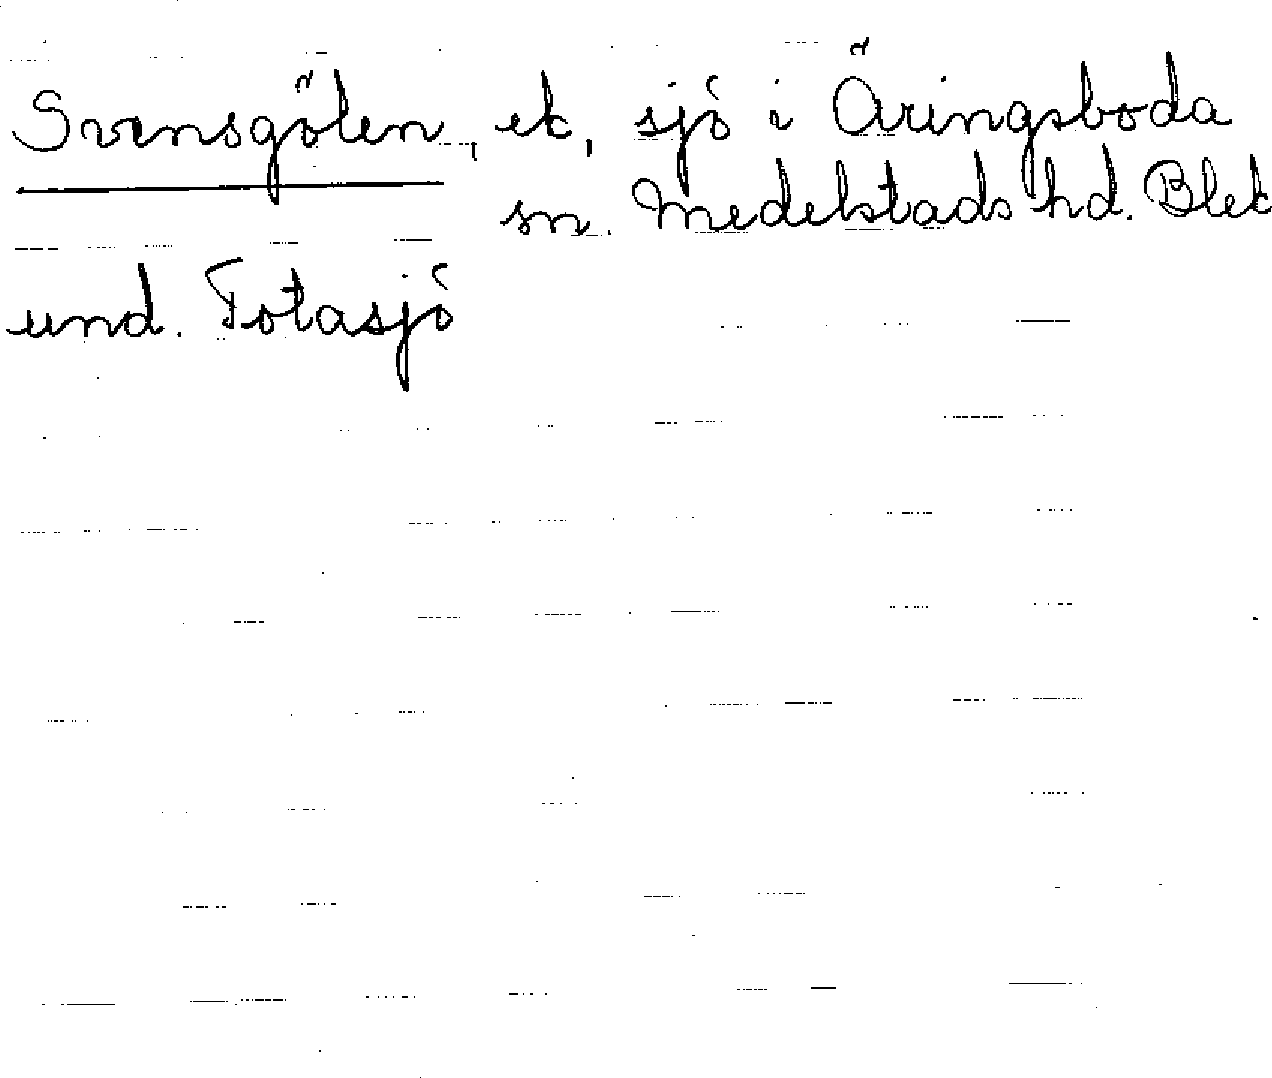 Svensgölen, ek, sjö i Äringsboda
sn. Medelstads hd. Blek
und. Totasjö